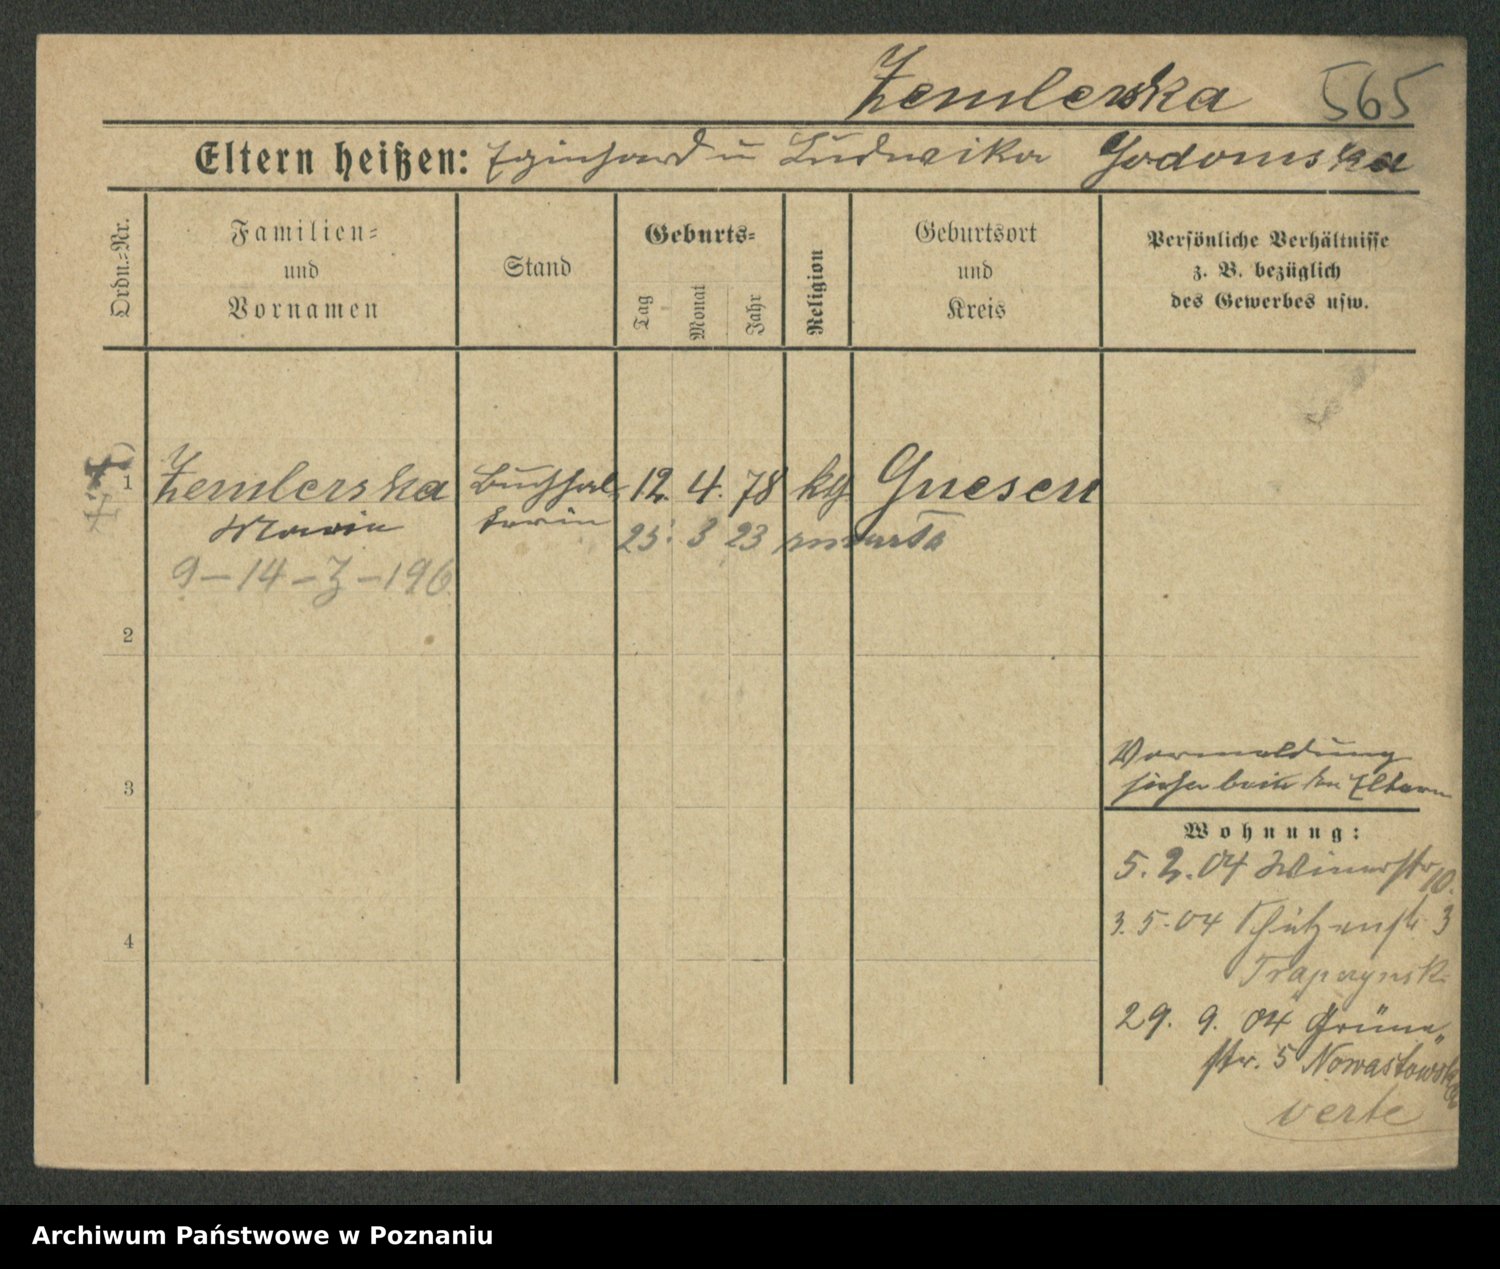 Zemlerska 565
Eltern heißen: Eginhard u Ludwika Godomska
Ordn.-Nr.
Familien-
und
Vornamen
Stand
Geburts-
Tag
Monat
Jahr
Religion
Geburtsort
und
Kreis
Persönliche Verhältnisse
z. B. bezüglich
des Gewerbes usw.
1 Zemlerska Buchhal- 12. 4. 78 kth Gnesen
Maria terin 25. 3 23 zmarła
9-14-Z-196
2
3
4
Vormeldung
siehe bei den Eltern
Wohnung:
5. 2. 04 10.
3. 5. 04 Schützenstr 3
29. 9. 04 Grüne
str. 5 Nowastowska
verte
Archiwum Państwowe w Poznaniu